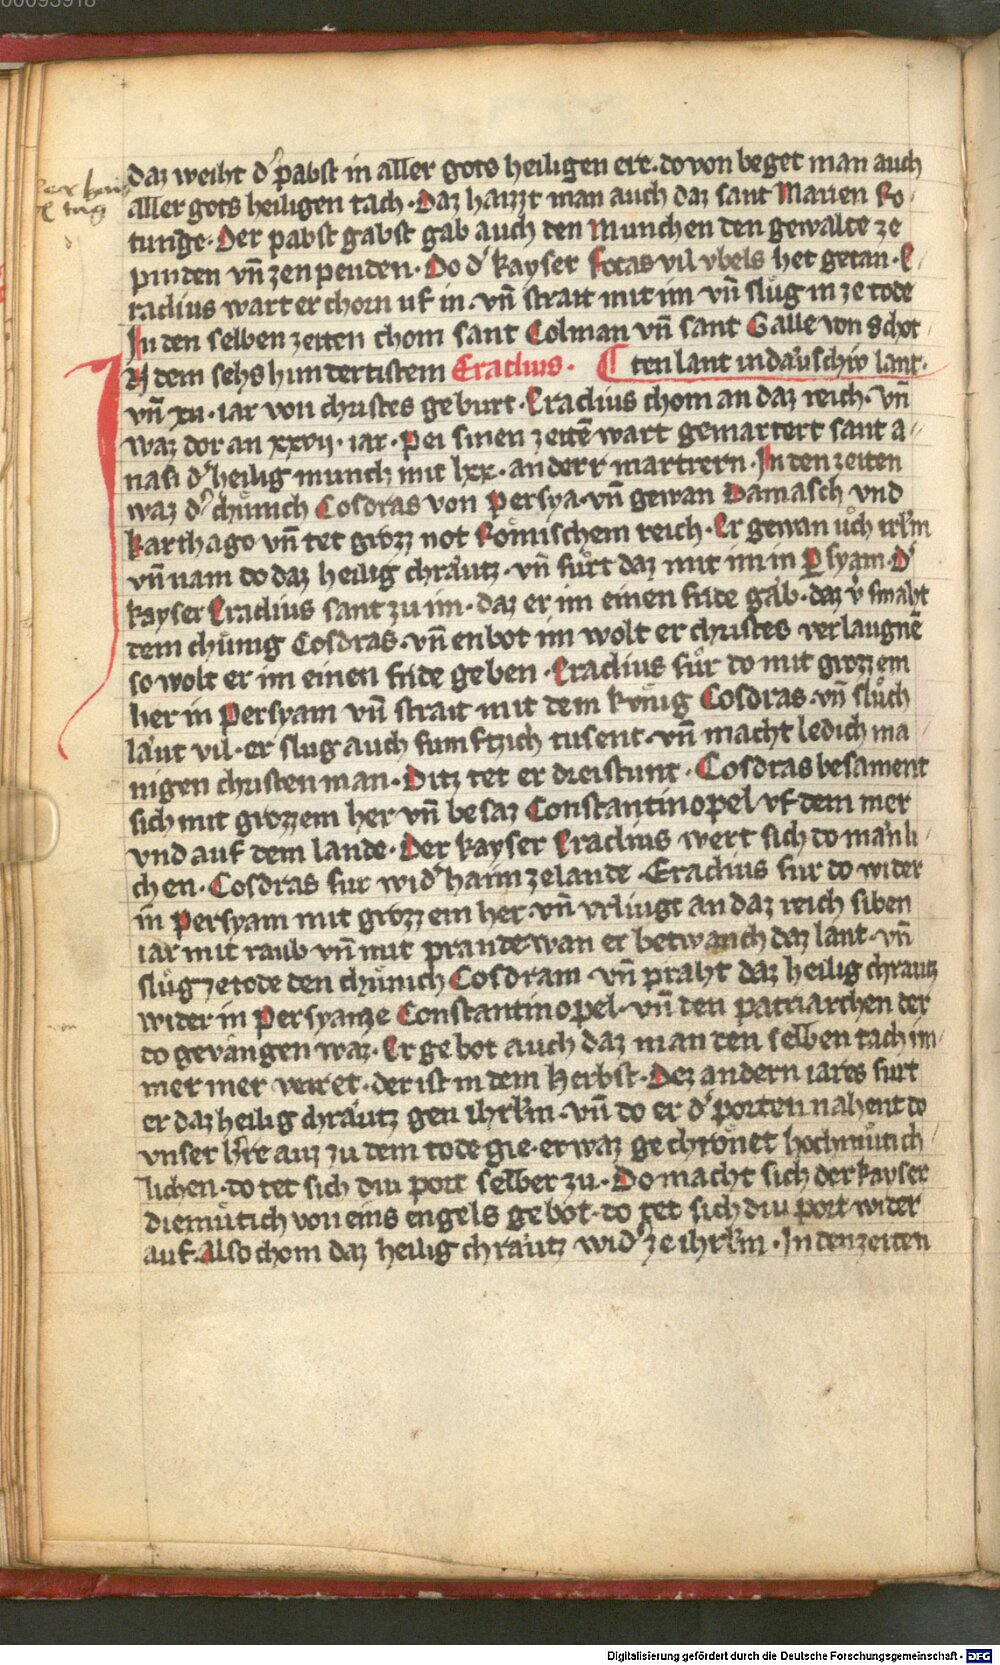 00093918
daz weiht d' pabst in aller gots heiligen ere. do von beget man auch
aller gots heiligen tach. Daz haizzt man auch daz sant Marien Ro
tunde. Der pabst gabst gab auch den Munchen den gewalte ze
pinden vn̄ zenpenden. Do d' kayser Focas vil vbels het getan. E
raclius wart erchorn uf in. vn̄ strait mit im vn̄ slůg in ze tode
In den selben zeiten chom sant Colman vn̄ sant Galle von Schot
ten lant in däuschiv lant.
In dem sehshundertistem Eraclius.
vn̄ xii. iar von christes geburt. Eraclius chom an daz reich. vn̄
waz dor an xxvii. iar. Pei sinen zeitē wart gemartert sant a
nasi d' heilig munch mit lxx. anderr martrern. In den zeiten
waz d' chůnich Cosdras von Persya. vn̄ gewan Damasch vnd
karthago vn̄ tet grozz not Römischem reich. Er gewan ůch irl'm
vn̄ nam do daz heilig chräutz. vn̄ fůrt daz mit im in Psyam. D'
kayser Eraclius sant zu im. daz er im einen fride gäb. daz v'smäht
dem chůnig Cosdras. vn̄ enbot im wolt er christes verlaugnē
so wolt er im einen fride geben. Eraclius fůr do mit grozzem
her in Persyam vn̄ strait mit dem kůnig Cosdras. vn̄ slůch
läut vil. er slug auch fumftzich tusent. vn̄ macht ledich ma
nigen christen man. Ditz tet er dreistunt. Cosdras besament
sich mit grozzem her vn̄ besaz Constantinopel vf dem mer
vnd auf dem lande. Der kayser Eraclius wert sich do mänli
chen. Cosdras fur wid' haim zelande. Eraclius fur do wider
in Persyam mit grozzem her. vn̄ vrlivgt an daz reich siben
iar mit raub vn̄ mit prande. wan er betwanch daz lant. vn̄
slůg zetode den chůnich Cosdram. vn̄ praht daz heilig chrautz
wider in Persyam ze Constantinopel. vn̄ den patriarchen der
do gevangen waz. Er gebot auch daz man den selben tach im
mer mer veiret. der ist in dem Herbst. Dez andern iares furt
er daz heilig chräutz gen ihrl'm. vn̄ do er d' porten nahent do
vnser h're auz zu dem tode gie. er waz gechrönet hochmůtich
lichen. do tet sich div port selber zu. Do macht sich der kayser
diemůtich von eins engels gebot. do tet sich div port wider
auf. Also chom daz heilig chräutz wid' ze ihrl'm. In den zeiten
Digitalisierung gefördert durch die Deutsche Forschungsgemeinschaft - DFG